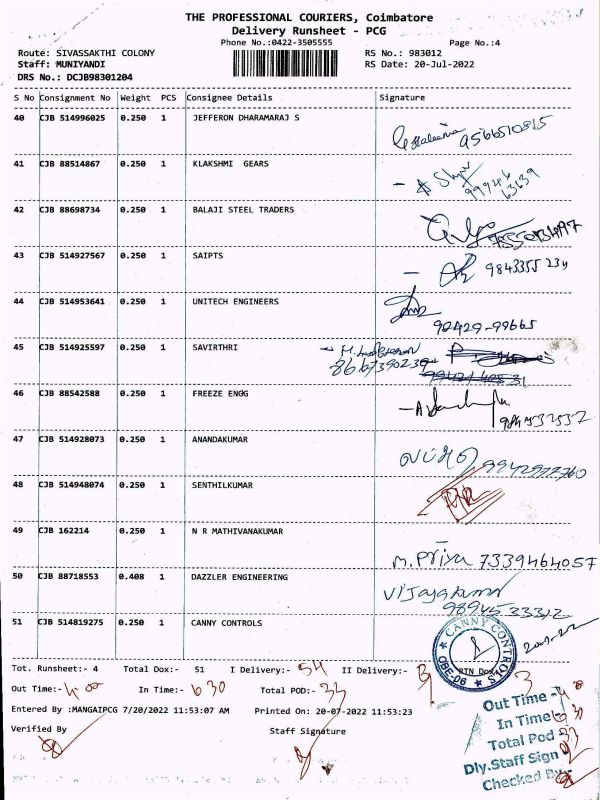 THE PROFESSIONAL COURIERS, Coimbatore
Delivery Runsheet - PCG
Phone No.:0422-3505555
Page No.:4
Route: SIVASSAKTHI COLONY
RS No.: 983012
Staff: MUNIYANDI
RS Date: 20-Jul-2022
DRS No.: DCJB98301204
S No Consignment No Weight PCS Consignee Details Signature
40 CJB 514996025 0.250 1 JEFFERON DHARAMARAJ S
9566510815
41 CJB 88514867 0.250 1 KLAKSHMI GEARS
99946
63639
42 CJB 88698734 0.250 1 BALAJI STEEL TRADERS
43 CJB 514927567 0.250 1 SAIPTS
9843355 234
44 CJB 514953641 0.250 1 UNITECH ENGINEERS
90429-99665
45 CJB 514925597 0.250 1 SAVIRTHRI
46 CJB 88542588 0.250 1 FREEZE ENGG
47 CJB 514928073 0.250 1 ANANDAKUMAR
9942977760
48 CJB 514948074 0.250 1 SENTHILKUMAR
49 CJB 162214 0.250 1 N R MATHIVANAKUMAR
M. Priya 7339464057
50 CJB 88718553 0.408 1 DAZZLER ENGINEERING
Vijayakumar
98945 33312
51 CJB 514819275 0.250 1 CANNY CONTROLS
CANNY CONTROLS
CBE-06
Tot. Runsheet:- 4 Total Dox:- 51 I Delivery:- 54 II Delivery:- RTN Dox:- 3
Out Time:- 4 00 In Time:- 6 30 Total POD:- 33
Entered By :MANGAIPCG 7/20/2022 11:53:07 AM Printed On: 20-07-2022 11:53:23
Verified By Staff Signature
Out Time - 4 00
In Time - 6 30
Total Pod 33
Dly.Staff Sign
Checked By